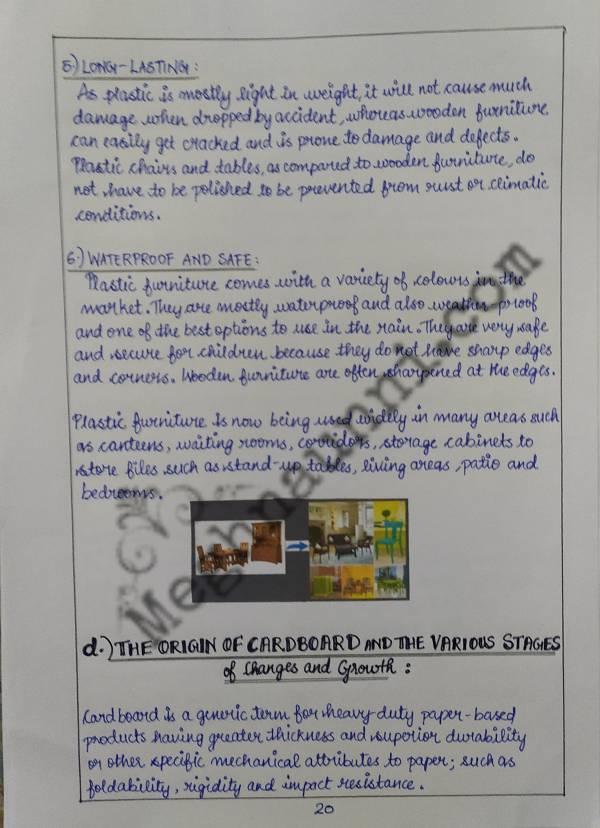 5.) LONG-LASTING:
As plastic is mostly light in weight, it will not cause much
damage when dropped by accident, whereas wooden furniture
can easily get cracked and is prone to damage and defects.
Plastic chairs and tables, as compared to wooden furniture, do
not have to be polished to be prevented from rust or climatic
conditions.
6.) WATERPROOF AND SAFE:
Plastic furniture comes with a variety of colours in the
market. They are mostly waterproof and also weather proof
and one of the best options to use in the rain. They are very safe
and secure for children because they do not have sharp edges
and corners. Wooden furniture are often sharpened at the edges.
Plastic furniture is now being used widely in many areas such
as canteens, waiting rooms, corridors, storage cabinets to
store files such as stand-up tables, living areas, patio and
bedrooms.
d.) THE ORIGIN OF CARDBOARD AND THE VARIOUS STAGES
of Changes and Growth :
Cardboard is a generic term for heavy-duty paper-based
products having greater thickness and superior durability
or other specific mechanical attributes to paper; such as
foldability, rigidity and impact resistance.
20